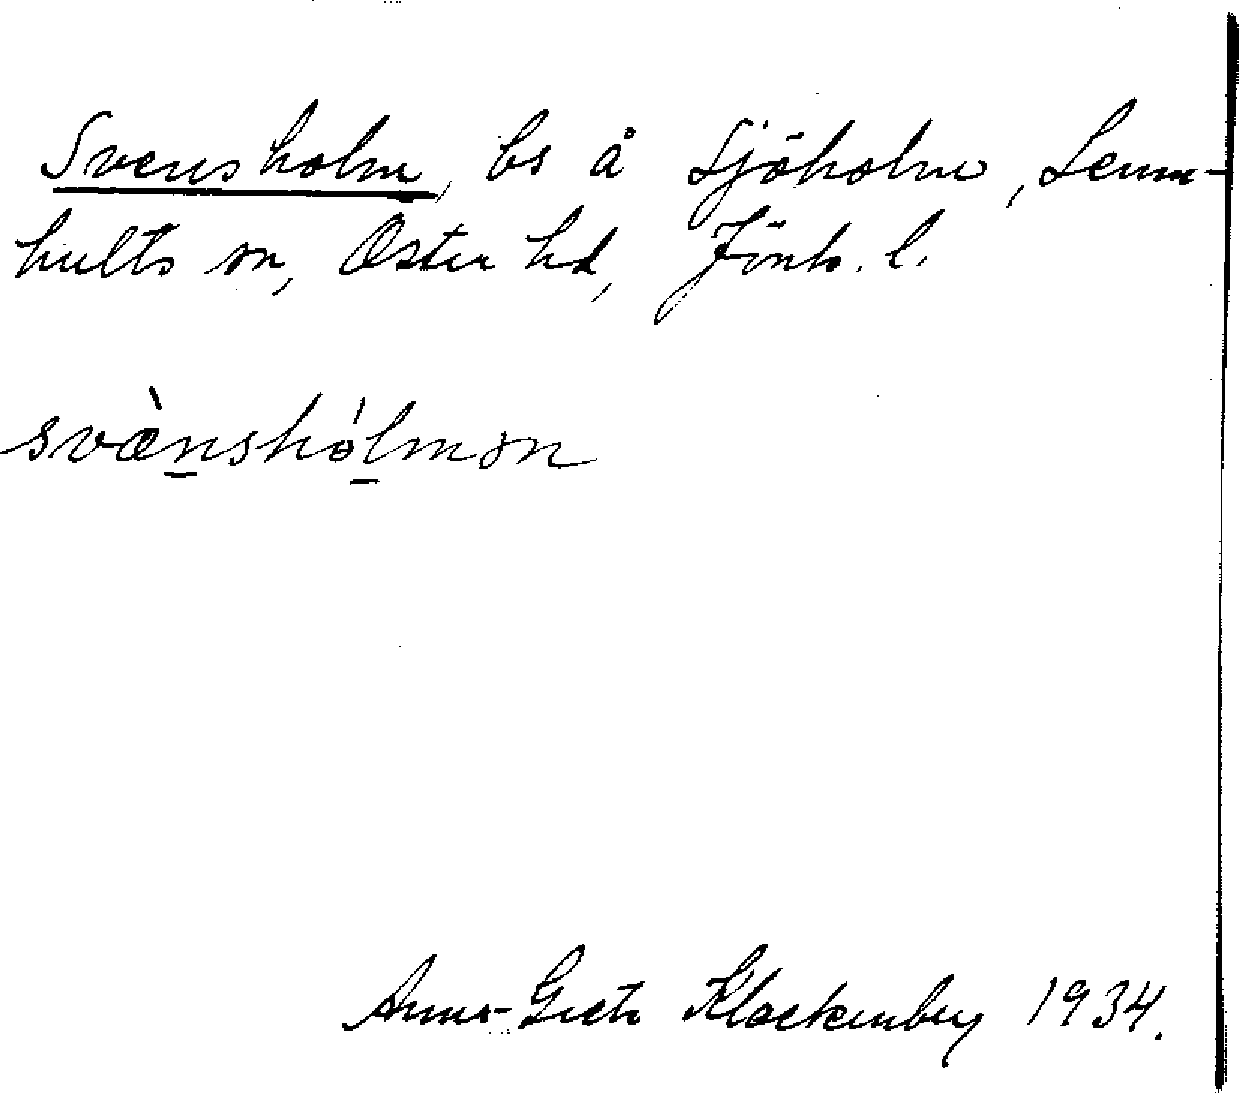 Svensholm, bs å Sjöholm, Lem-
hults sn, Östra hd, Jönk. l.
svæ̀nshólmən
Anna-Greta Klackenberg 1934.